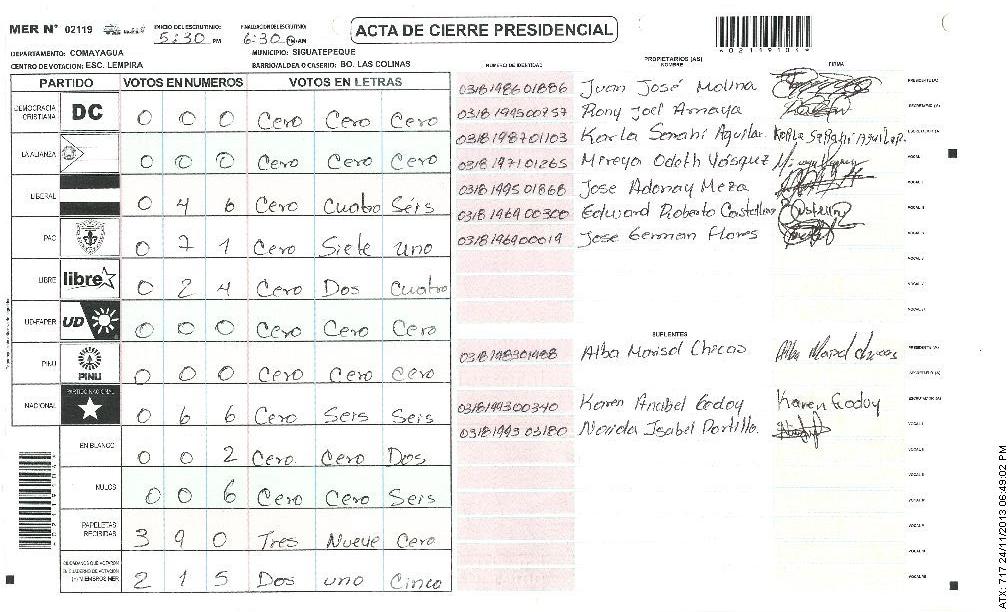 MER N° 02119 INICIO DEL ESCRUTINIO: 5:30 PM FINALIZACION DEL ESCRUTINIO: 6:30 PM/AM ACTA DE CIERRE PRESIDENCIAL
DEPARTAMENTO: COMAYAGUA MUNICIPIO: SIGUATEPEQUE
CENTRO DE VOTACION: ESC. LEMPIRA BARRIO/ALDEA O CASERIO: BO. LAS COLINAS
PARTIDO VOTOS EN NUMEROS VOTOS EN LETRAS
DEMOCRACIA CRISTIANA DC 0 0 0 Cero Cero Cero
LA ALIANZA 0 0 0 Cero Cero Cero
LIBERAL 0 4 6 Cero Cuatro Séis
PAC 0 7 1 Cero Siete uno
LIBRE libre 0 2 4 Cero Dos Cuatro
UD-FAPER UD 0 0 0 Cero Cero Cero
PINU PINU 0 0 0 Cero Cero Cero
NACIONAL PARTIDO NACIONAL 0 6 6 Cero Seis Seis
EN BLANCO 0 0 2 Cero. Cero Dos
NULOS 0 0 6 Cero Cero Seis
PAPELETAS RECIBIDAS 3 9 0 Tres Nueve Cero
CIUDADANOS QUE VOTARON EN CUADERNO DE VOTACION (+) MIEMBROS MER 2 1 5 Dos uno Cinco
NUMERO DE IDENTIDAD PROPIETARIOS (AS) NOMBRE FIRMA
0318198601886 Juan José Molina PRESIDENTE (A)
0318199500757 Rony Joel Amaya SECRETARIO (A)
0318198701103 Karla Senahi Aguilar.
0318197101265 Mireya Odeth Vásquez VOCAL
0318199501868 Jose Adonay Meza
0318196900300 Edward Roberto Castellanos
0318196900019 Jose German Flores
SUPLENTES
0318198301488 Alba Marisol Chicas PRESIDENTE (A)
SECRETARIO (A)
0318199300340 Karen Anabel Godoy Karen Godoy
0318199303180 Nerida Isabel Portillo.
ATX: 717 24/11/2013 06:49:02 PM